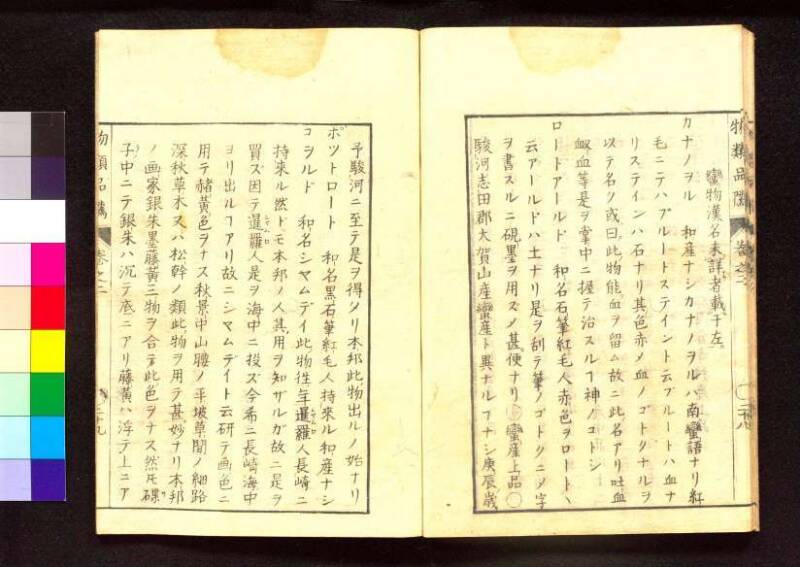 物類品隲 巻之二 二十八
蠻物漢名未詳者載于左
カナノヲル 和産ナシカナノヲルハ南蠻語ナリ紅
毛ニテハブルートステイント云ブルートハ血ナ
リステインハ石ナリ其色赤メ血ノゴトクナルヲ
以テ名ク或曰此物能血ヲ留ム故ニ此名アリ吐血
衂血等是ヲ掌中ニ握テ治スルヿ神ノゴトシ
ロートアールド 和名石筆紅毛人赤色ヲロートヽ
云アールドハ土ナリ是ヲ刮テ筆ノゴトクニメ字
ヲ書スルニ硯墨ヲ用ズメ甚便ナリ○蠻産上品○
駿河志田郡大賀山産蠻産ト異ナルヿナシ庚辰歳
予駿河ニ至テ是ヲ得タリ本邦此物出ルノ始ナリ
ポツトロート 和名黒石筆紅毛人持來ル和産ナシ
コヲルド 和名シヤムデイ此物徃年暹羅人長崎ニ
持来ル然ドモ本邦ノ人其用ヲ知ザルガ故ニ是ヲ
買ズ因テ暹羅人是ヲ海中ニ投ズ今希ニ長崎海中
ヨリ出ルヿアリ故ニシヤムデイト云研テ画色ニ
用テ赭黄色ヲナス秋景中山腰ノ平坡草間ノ細路
深秋草木又ハ松幹ノ類此物ヲ用テ甚妙ナリ本邦
ノ画家銀朱墨藤黄三物ヲ合テ此色ヲナス然モ碟
子中ニテ銀朱ハ沉テ底ニアリ藤黄ハ浮テ上ニア
物類品隲 巻之二 二十九